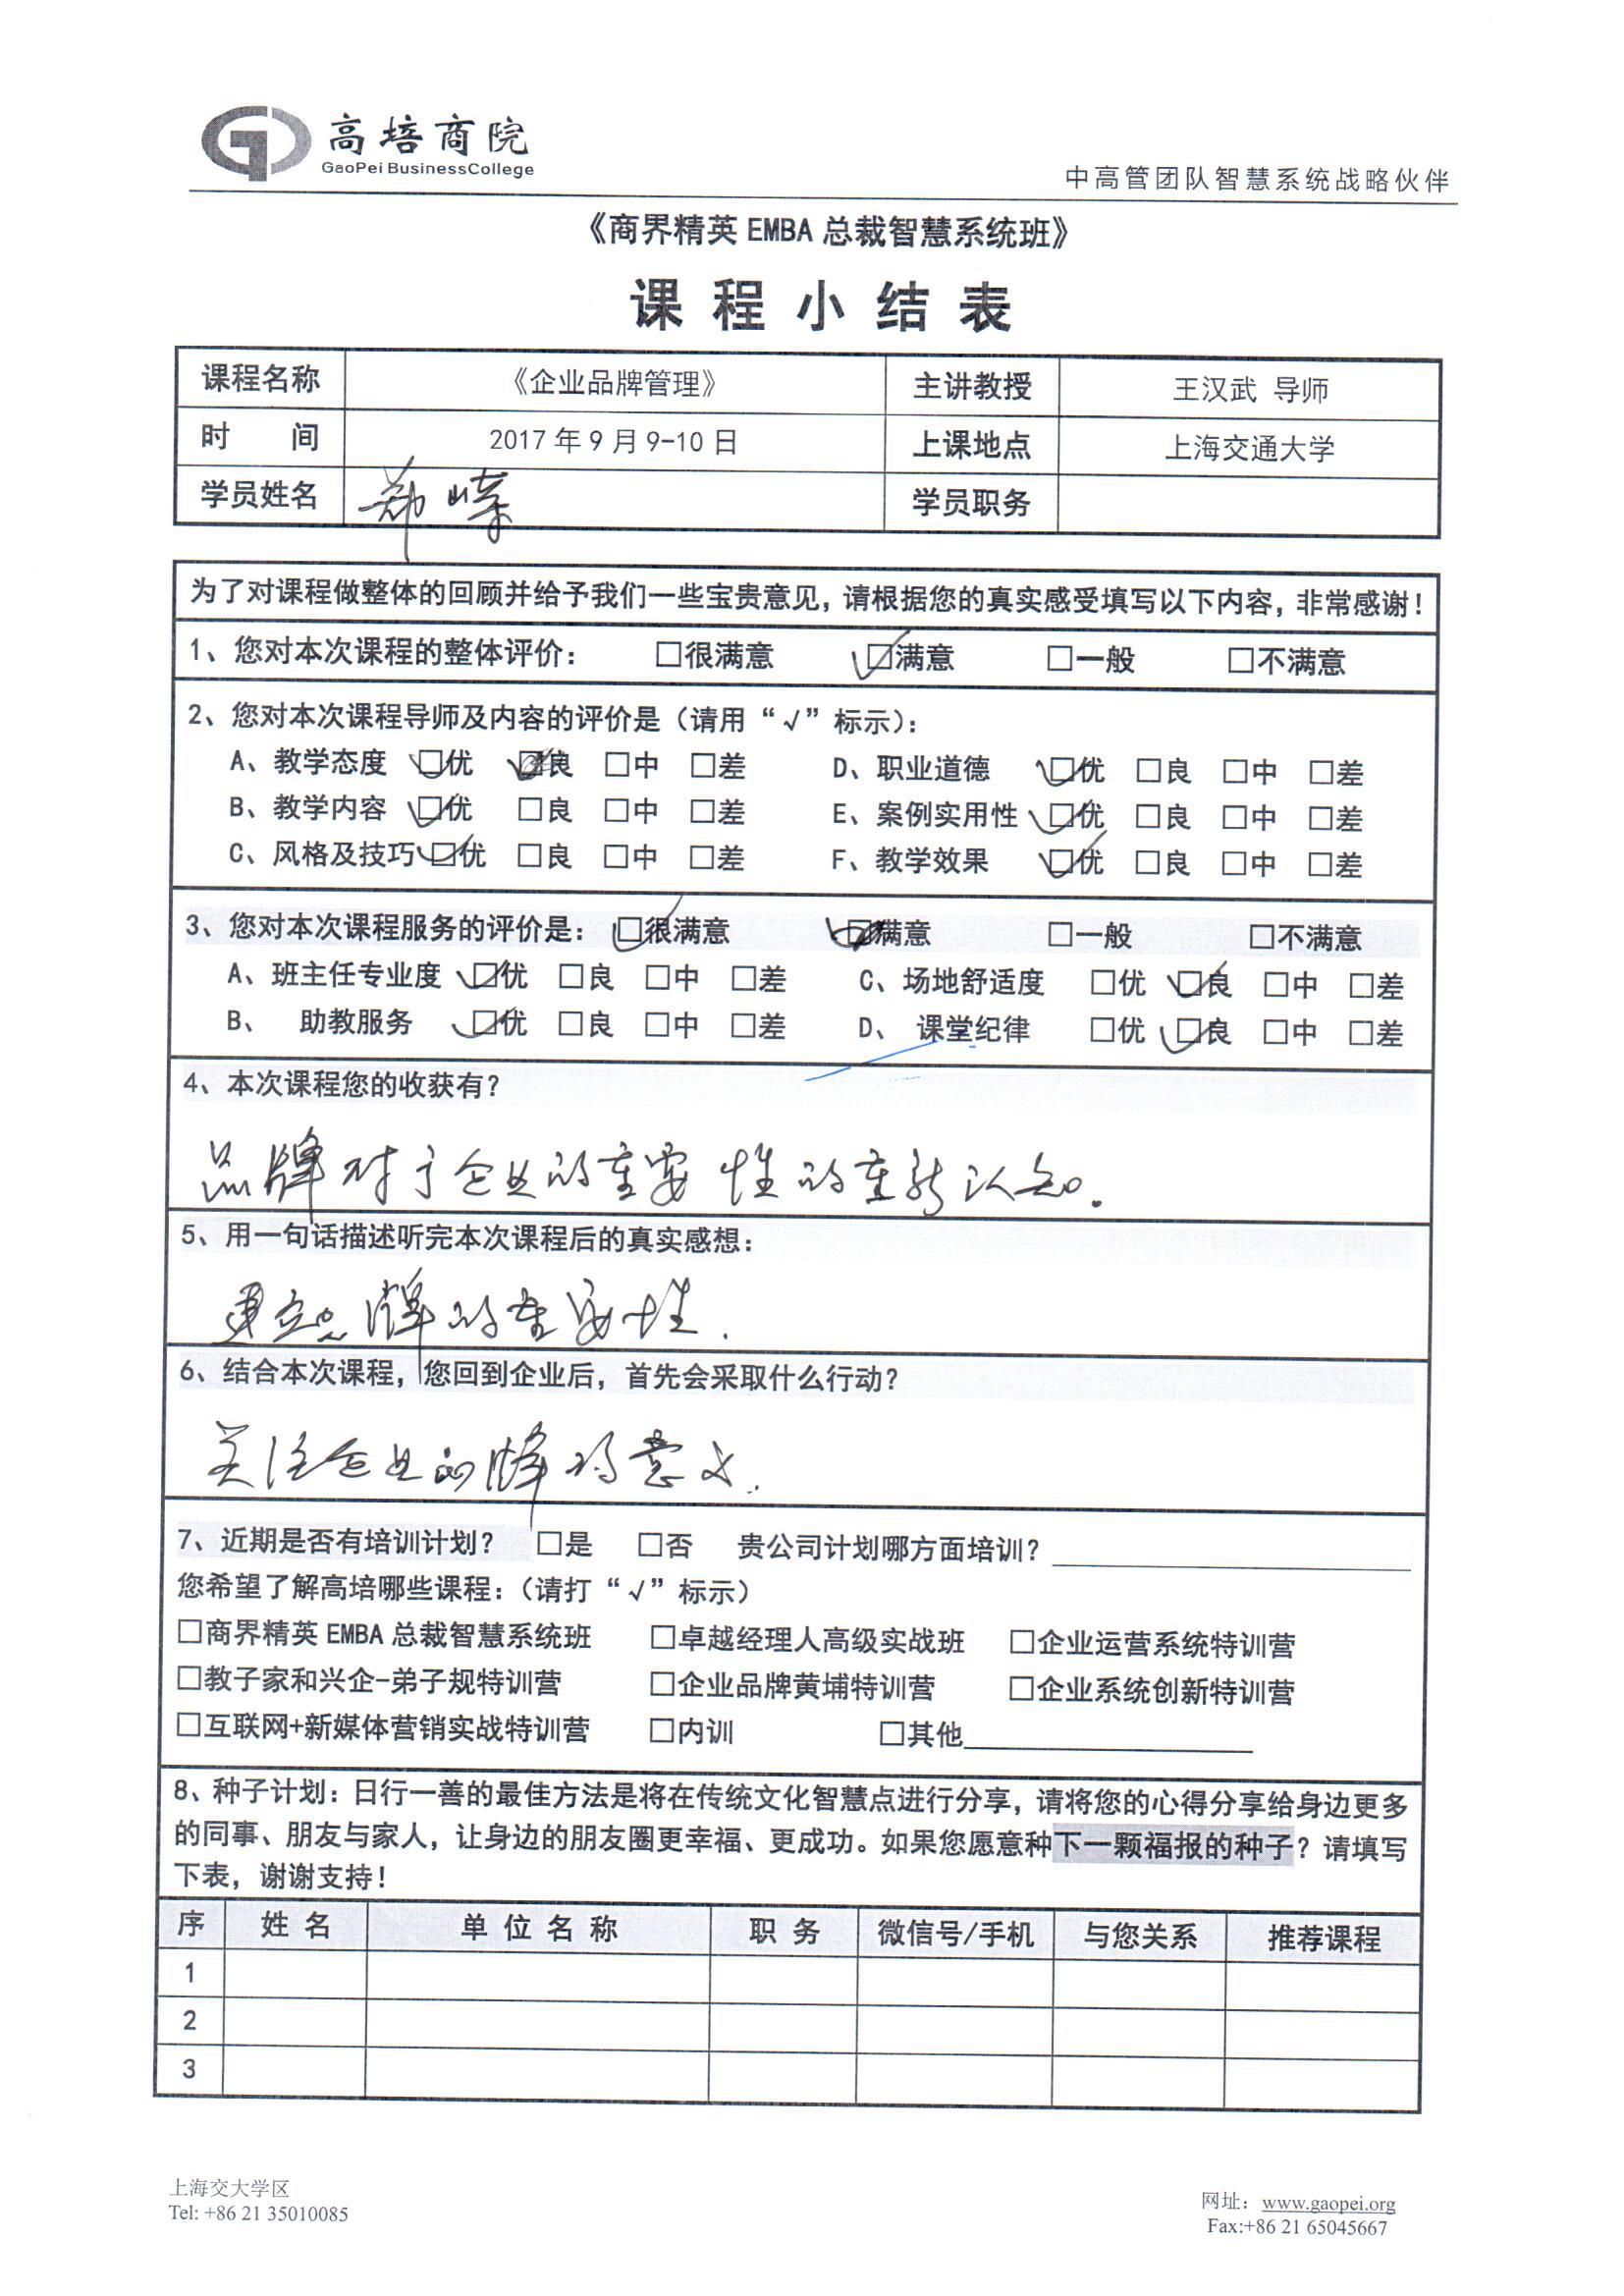 高培商院
GaoPei BusinessCollege
中高管团队智慧系统战略伙伴
《商界精英 EMBA 总裁智慧系统班》
课程小结表
课程名称 《企业品牌管理》 主讲教授 王汉武 导师
时 间 2017 年 9 月 9-10 日 上课地点 上海交通大学
学员姓名 郑嵘 学员职务
为了对课程做整体的回顾并给予我们一些宝贵意见，请根据您的真实感受填写以下内容，非常感谢！
1、您对本次课程的整体评价： □很满意 ☑满意 □一般 □不满意
2、您对本次课程导师及内容的评价是（请用“√”标示）：
A、教学态度 ☑优 □良 □中 □差 D、职业道德 ☑优 □良 □中 □差
B、教学内容 ☑优 □良 □中 □差 E、案例实用性 ☑优 □良 □中 □差
C、风格及技巧 ☑优 □良 □中 □差 F、教学效果 ☑优 □良 □中 □差
3、您对本次课程服务的评价是： ☑很满意 □满意 □一般 □不满意
A、班主任专业度 ☑优 □良 □中 □差 C、场地舒适度 □优 ☑良 □中 □差
B、 助教服务 ☑优 □良 □中 □差 D、 课堂纪律 □优 ☑良 □中 □差
4、本次课程您的收获有？
品牌对于企业的重要性的重新认知.
5、用一句话描述听完本次课程后的真实感想：
建立品牌的重要性.
6、结合本次课程，您回到企业后，首先会采取什么行动？
关注企业品牌的意义.
7、近期是否有培训计划？ □是 □否 贵公司计划哪方面培训？
您希望了解高培哪些课程：（请打“√”标示）
□商界精英 EMBA 总裁智慧系统班 □卓越经理人高级实战班 □企业运营系统特训营
□教子家和兴企-弟子规特训营 □企业品牌黄埔特训营 □企业系统创新特训营
□互联网+新媒体营销实战特训营 □内训 □其他
8、种子计划：日行一善的最佳方法是将在传统文化智慧点进行分享，请将您的心得分享给身边更多
的同事、朋友与家人，让身边的朋友圈更幸福、更成功。如果您愿意种下一颗福报的种子？请填写
下表，谢谢支持！
序 姓 名 单 位 名 称 职 务 微信号/手机 与您关系 推荐课程
1
2
3
上海交大学区
Tel: +86 21 35010085
网址：www.gaopei.org
Fax:+86 21 65045667